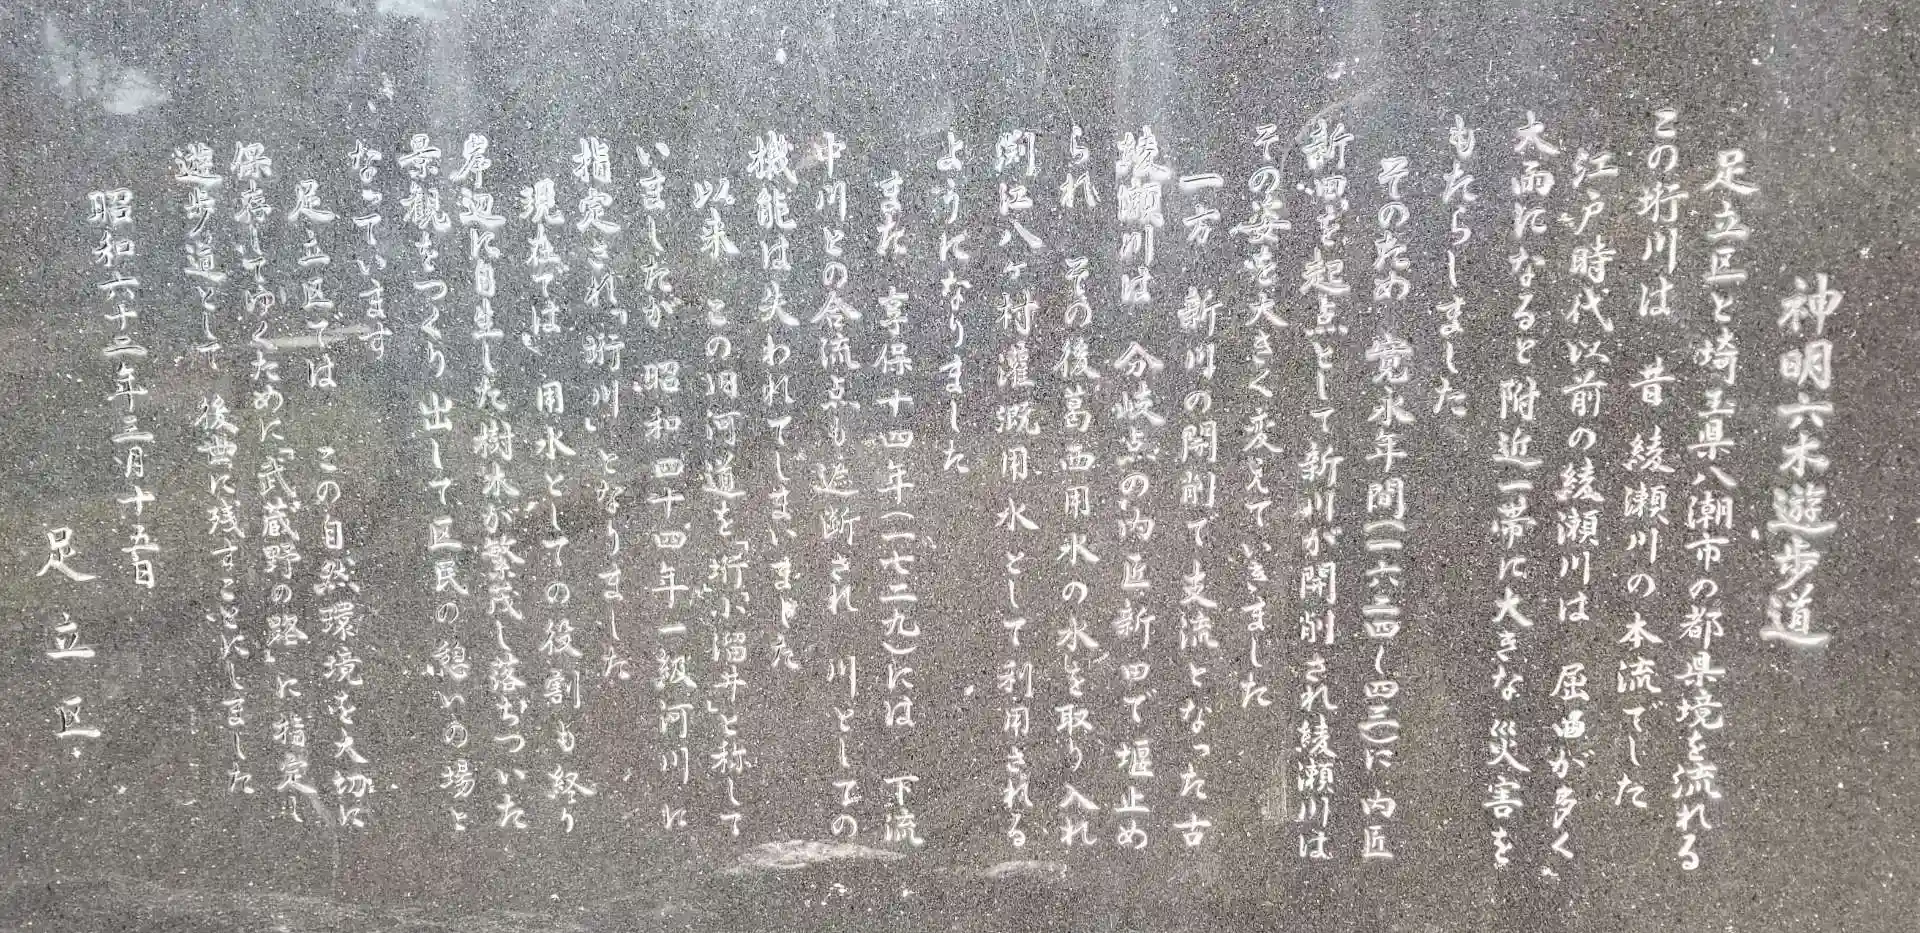 神明六木遊歩道
足立区と埼玉県八潮市の都県境を流れる
この垳川は 昔 綾瀬川の本流でした
江戸時代以前の綾瀬川は 屈曲が多く
大雨になると附近一帯に大きな災害を
もたらしました
そのため 寛永年間(一六二四〜四三)に内匠
新田を起点として新川が開削され綾瀬川は
その姿を大きく変えていきました
一方 新川の開削で支流となった古
綾瀬川は 分岐点の内匠新田で堰止め
られ その後葛西用水の水を取り入れ
渕江八ヶ村灌漑用水として利用される
ようになりました
また 享保十四年(一七二九)には 下流
中川との合流点も遮断され 川としての
機能は失われてしまいました
以来 この旧河道を「垳」「溜井」と称して
いましたが 昭和四十四年一級河川に
指定され「垳川」となりました
現在では 用水としての役割も終り
岸辺に自生した樹木が繁茂し落ちついた
景観をつくり出して区民の憩いの場と
なっています
足立区では この自然環境を大切に
保存してゆくために「武蔵野の路」に指定し
遊歩道として 後世に残すことにしました
昭和六十二年三月十五日
足立区